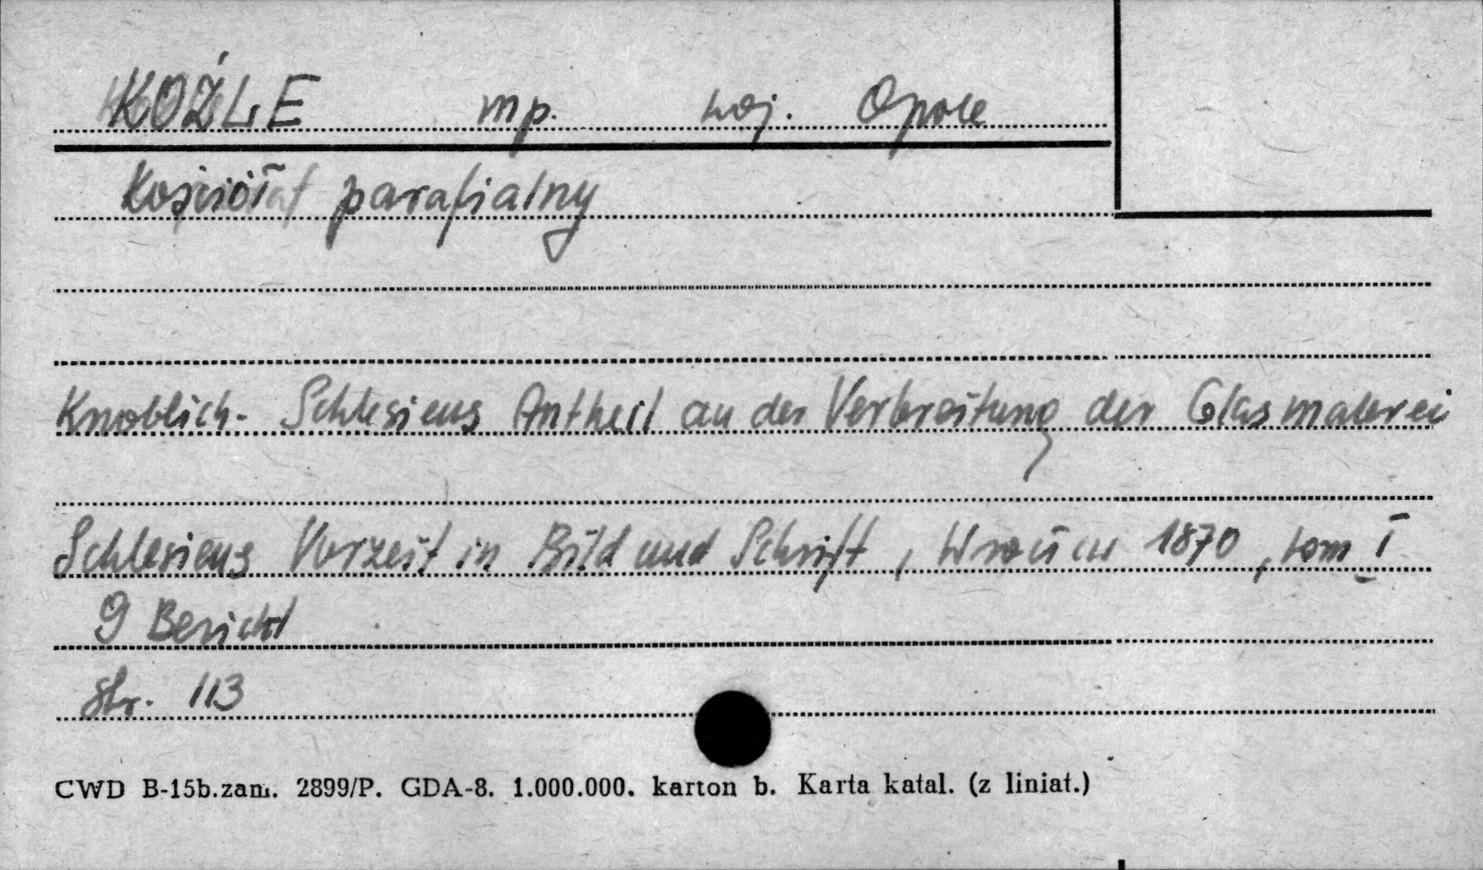 KOŹLE mp. woj. Opole
Kościół parafialny
Knoblich - Schlesiens Antheil an der Verbreitung der Glasmalerei
Schlesiens Vorzeit in Bild und Schrift, Wrocław 1870, tom I
9 Bericht
str. 113
CWD B-15b.zam. 2899/P. GDA-8. 1.000.000. karton b. Karta katal. (z liniat.)